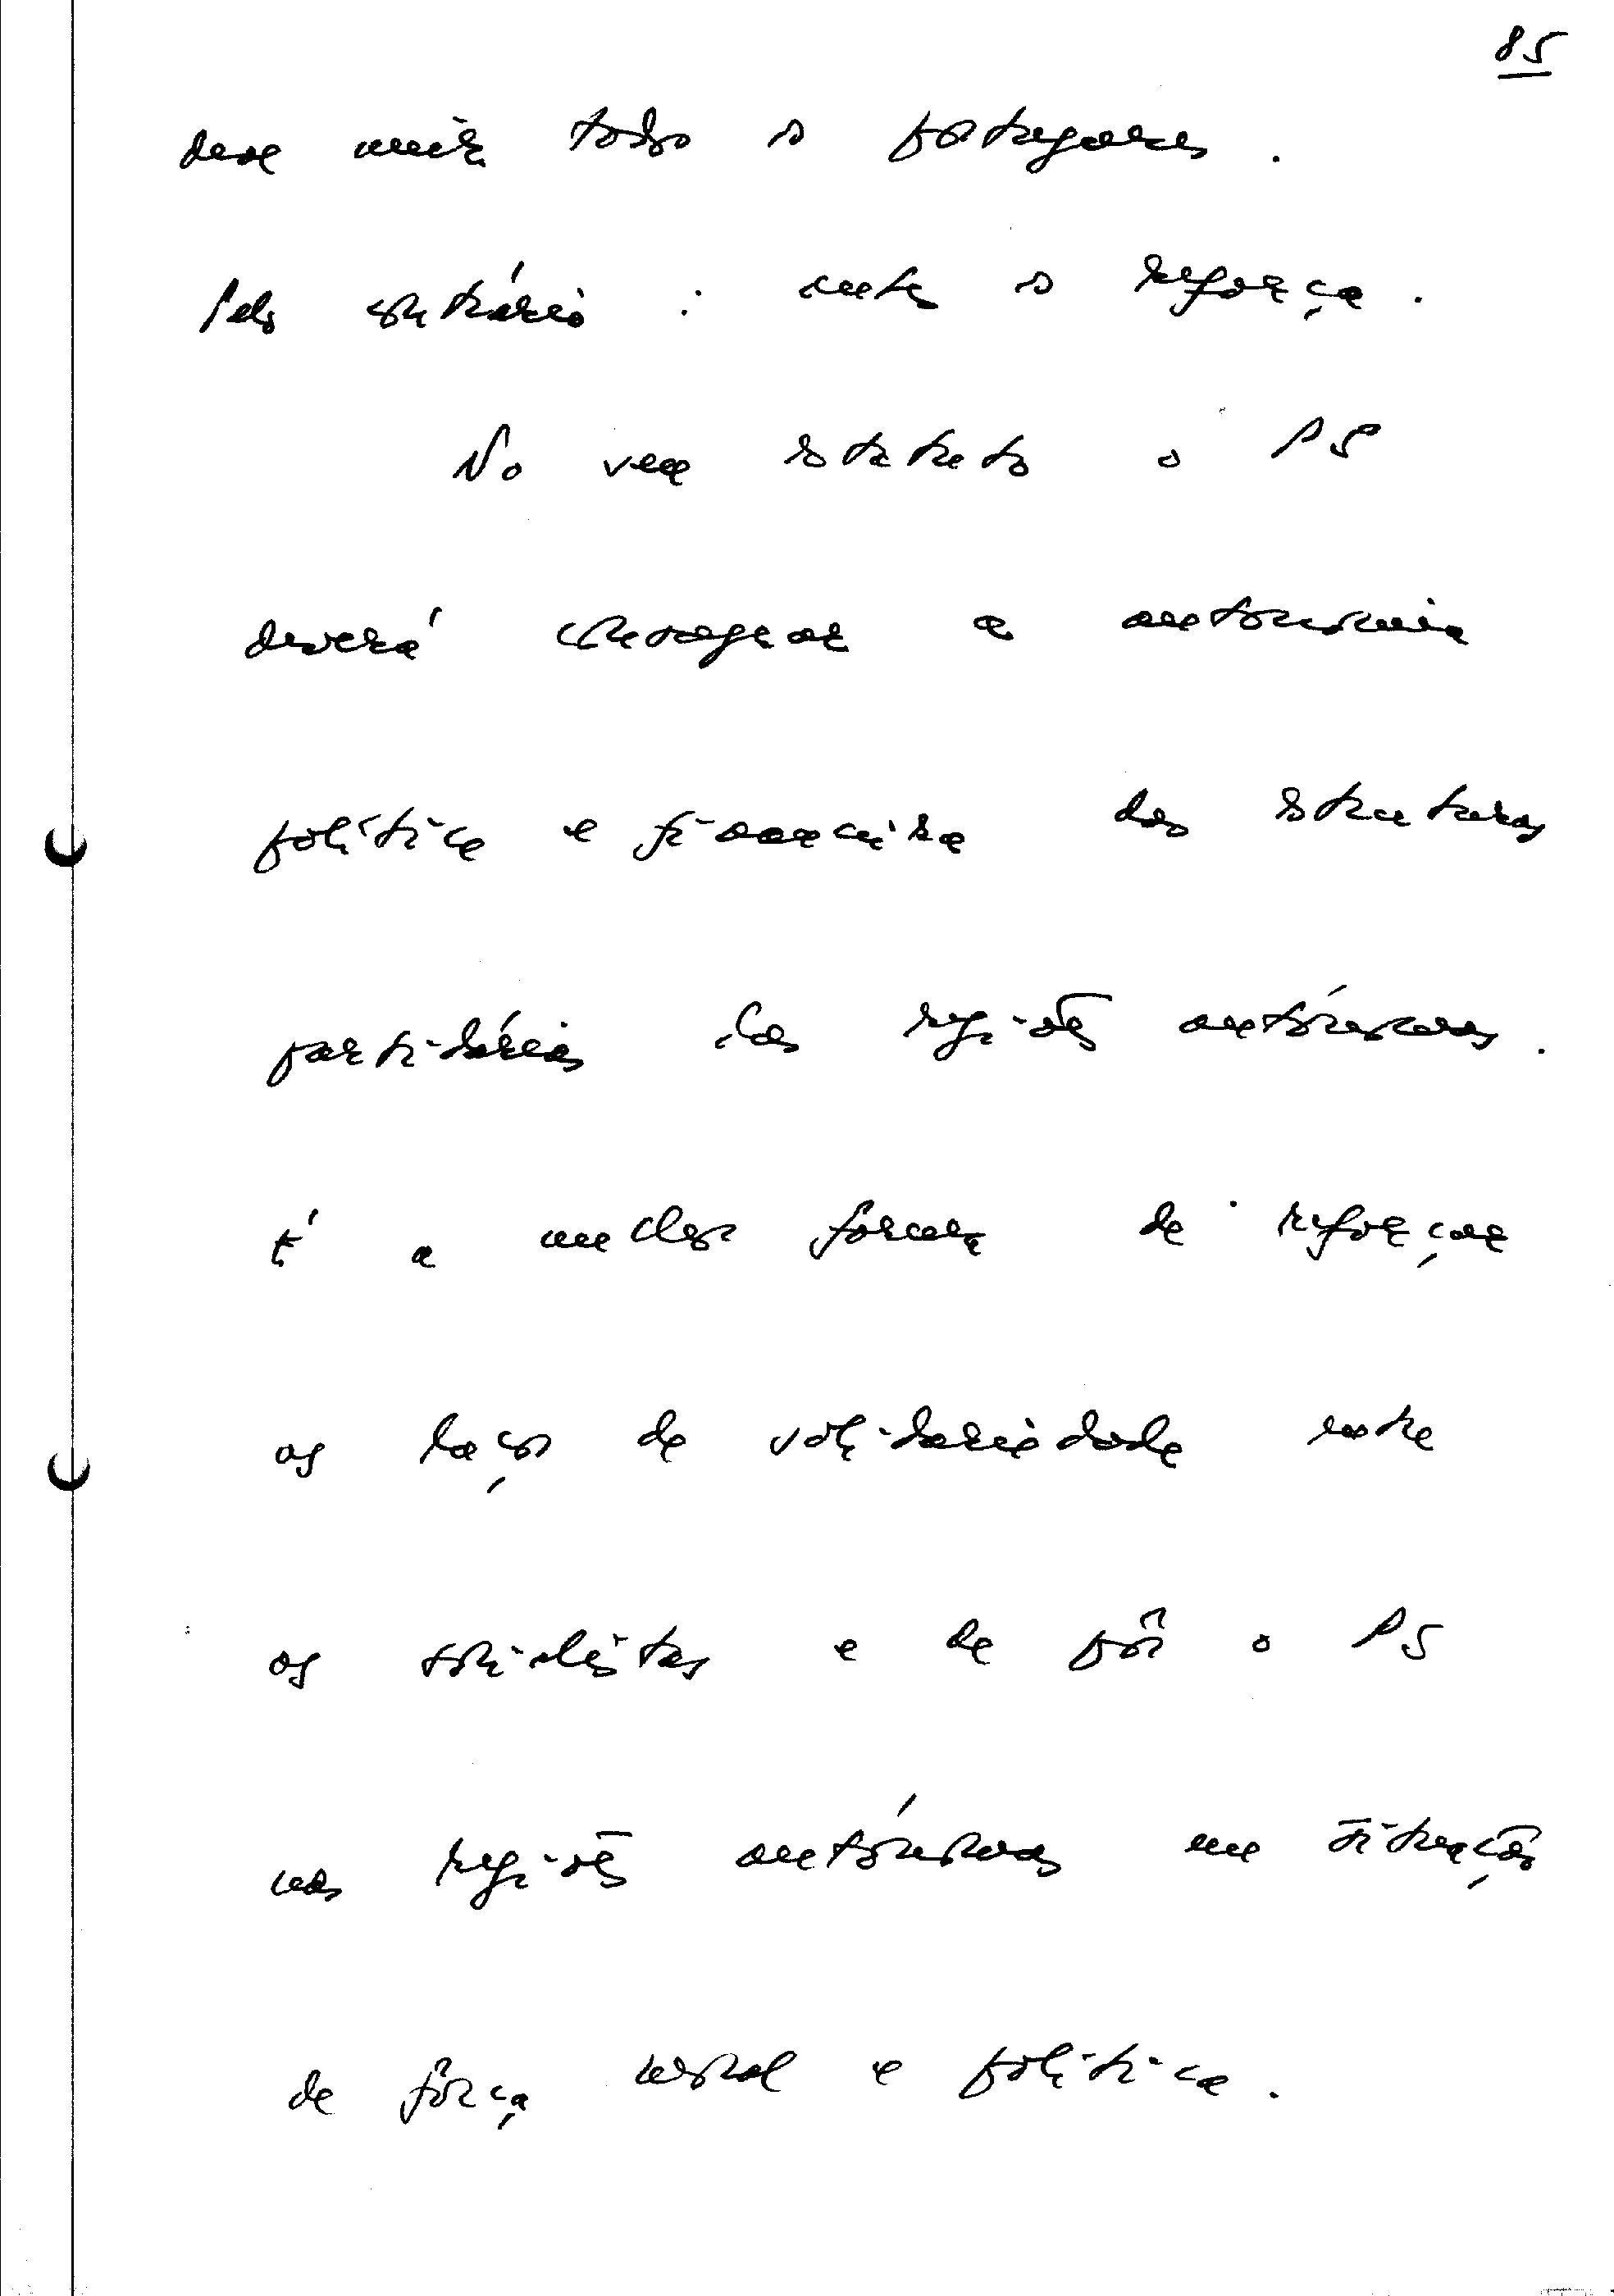 85
deve unir todos os portugueses.
Pelo contrário: antes os reforça.
No novo estatuto o PS
deverá consagrar a autonomia
política e financeira das estruturas
partidárias das regiões autónomas.
É a melhor forma de reforçar
os laços de solidariedade entre
os socialistas e de pôr o PS
nas regiões autónomas em situação
de força moral e política.